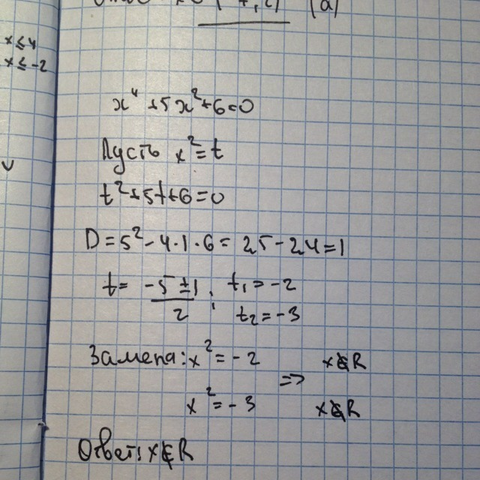 x ≤ 4
x ≤ -2
x⁴ + 5x² + 6 = 0
Пусть x² = t
t² + 5t + 6 = 0
D = 5² - 4·1·6 = 25 - 24 = 1
t = (-5 ± 1)/2 ; t₁ = -2
t₂ = -3
Замена: x² = -2 => x ∉ R
x² = -3 x ∉ R
Ответ: x ∉ R